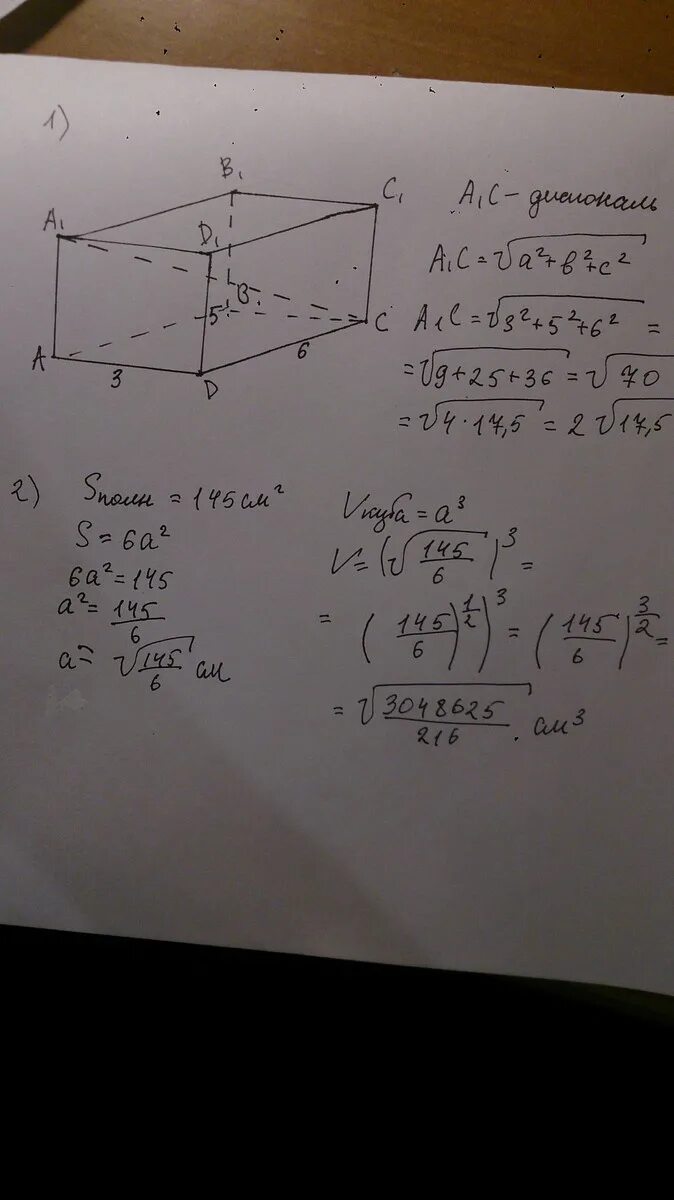 1)
B₁
C₁
A₁
D₁
B
5
C
A
3
D
6
A₁C - диагональ
A₁C = √(a² + b² + c²)
A₁C = √(3² + 5² + 6²) =
= √(9 + 25 + 36) = √70
= √(4 · 17,5) = 2√17,5
2) Sполн = 145 см²
S = 6a²
6a² = 145
a² = 145/6
a = √(145/6) см
Vкуба = a³
V = (√(145/6))³ =
= ((145/6)^(1/2))³ = (145/6)^(3/2) =
= √(3048625/216) см³